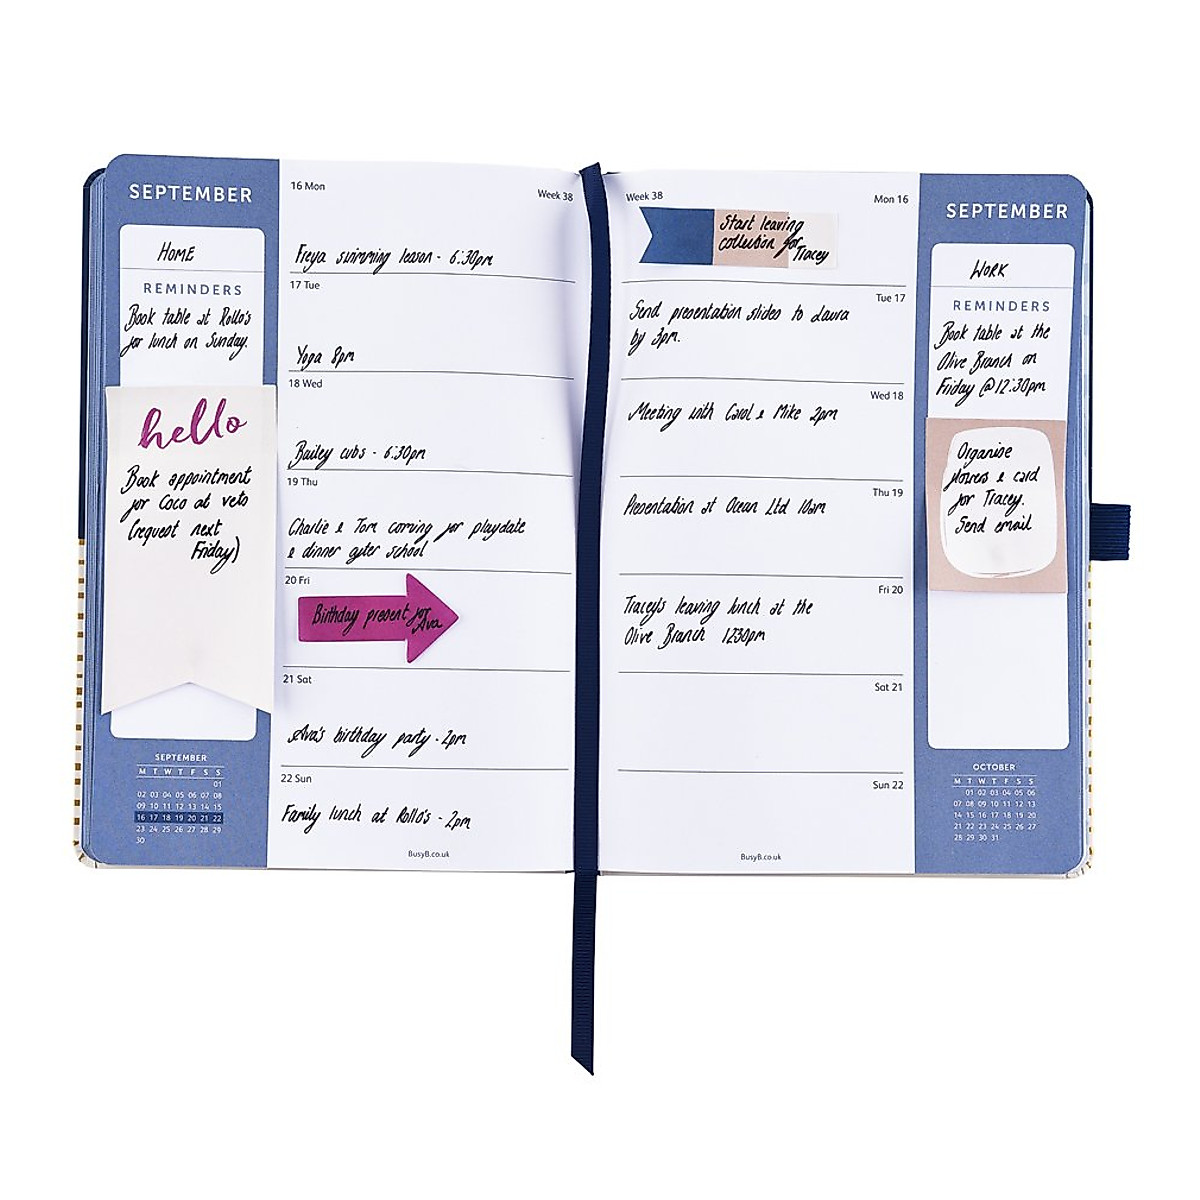 SEPTEMBER
HOME
REMINDERS
Book table at Rollo's
for lunch on Sunday.
hello
Book appointment
for Coco at vets
(request next
Friday)
SEPTEMBER
M T W T F S S
01
02 03 04 05 06 07 08
09 10 11 12 13 14 15
16 17 18 19 20 21 22
23 24 25 26 27 28 29
30
16 Mon
Week 38
Freya swimming lesson - 6:30pm
17 Tue
Yoga 8pm
18 Wed
Bailey cubs - 6:30pm
19 Thu
Charlie & Tom coming for playdate
& dinner after school
20 Fri
Birthday present for
Ava
21 Sat
Ava's birthday party - 2pm
22 Sun
Family lunch at Rollo's - 2pm
BusyB.co.uk
Week 38
Mon 16
Start leaving
collection for
Tracey
Tue 17
Send presentation slides to Laura
by 3pm.
Wed 18
Meeting with Carol & Mike 2pm
Thu 19
Presentation at Ocean Ltd 10am
Fri 20
Tracey's leaving lunch at the
Olive Branch 1230pm
Sat 21
Sun 22
BusyB.co.uk
SEPTEMBER
WORK
REMINDERS
Book table at the
Olive Branch on
Friday @ 12:30pm
Organise
flowers & card
for Tracey.
Send email
OCTOBER
M T W T F S S
01 02 03 04 05 06
07 08 09 10 11 12 13
14 15 16 17 18 19 20
21 22 23 24 25 26 27
28 29 30 31